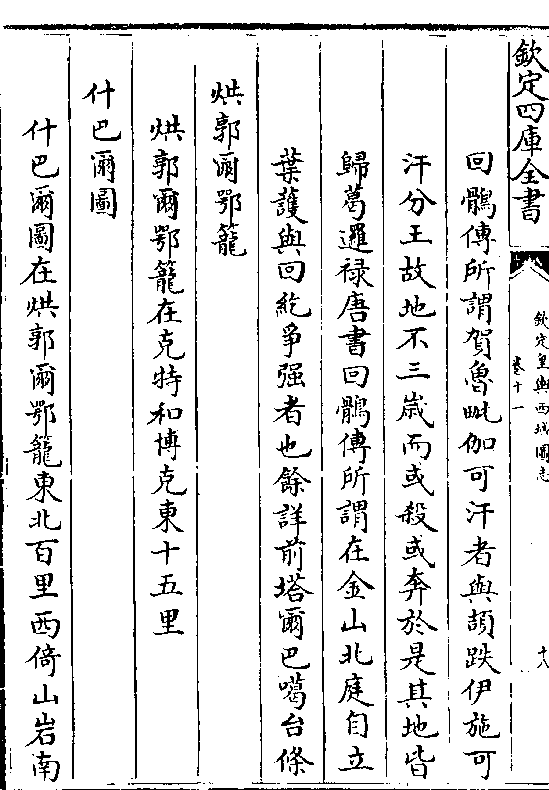 欽定四庫全書
欽定皇輿西域圖志
卷十一
十八
回鶻傳所謂賀魯毗伽可汗者與頡跌伊施可
汗分王故地不三嵗而或殺或奔於是其地皆
歸葛邏禄唐書回鶻傳所謂在金山北庭自立
葉護與回紇爭强者也餘詳前塔爾巴噶台條
烘郭爾鄂籠
烘郭爾鄂籠在克特和博克東十五里
什巴爾圖
什巴爾圖在烘郭爾鄂籠東北百里西倚山岩南